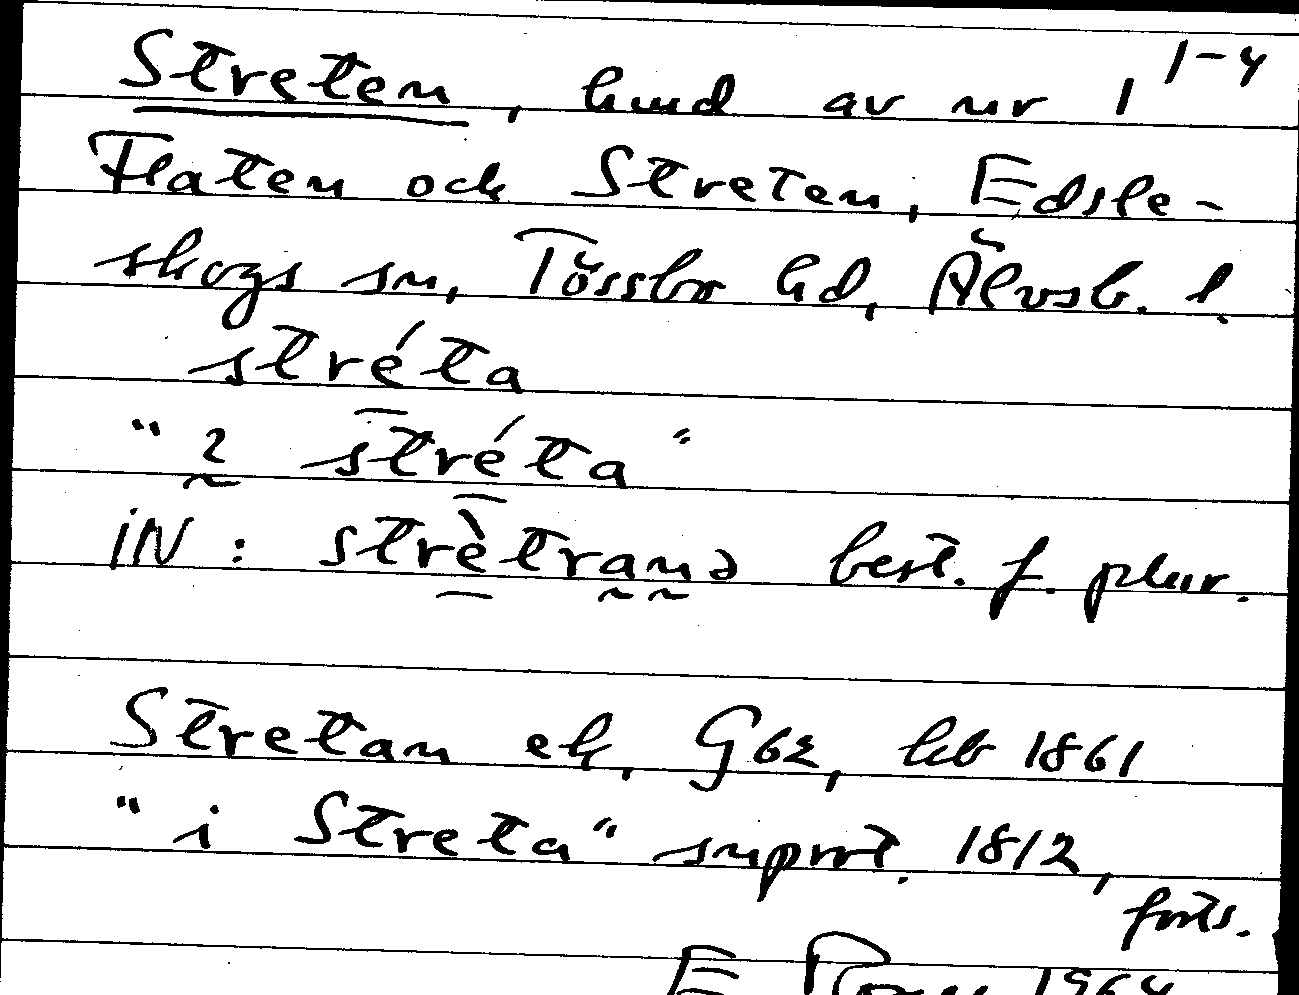 Streten, hmd av nr 1 1-4
Flaten och Streten, Edsle-
skogs sn, Tössbo hd, Älvsb. l.
stréta
"2 stréta"
iN: strètranə best. f. plur.
Stretan ek, G62, hb 1861
"i Streta" snprot. 1812,
forts.
E 1964